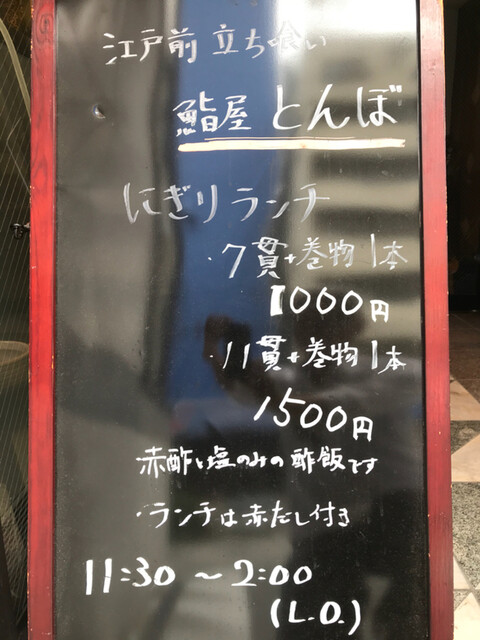 江戸前 立ち喰い
鮨屋 とんぼ
にぎりランチ
・7貫+巻物1本
1000円
・11貫+巻物1本
1500円
赤酢と塩のみの酢飯です
・ランチは赤だし付き
11:30 〜 2:00
(L.O.)